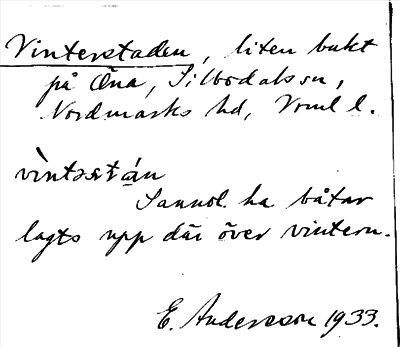 Vinterstaden, liten bukt
på Öna, Silbodals sn,
Nordmarks hd, Vrml l.
vìntəstá̱n
Sannol. ha båtar
lagts upp där över vintern.
E. Andersson 1933.